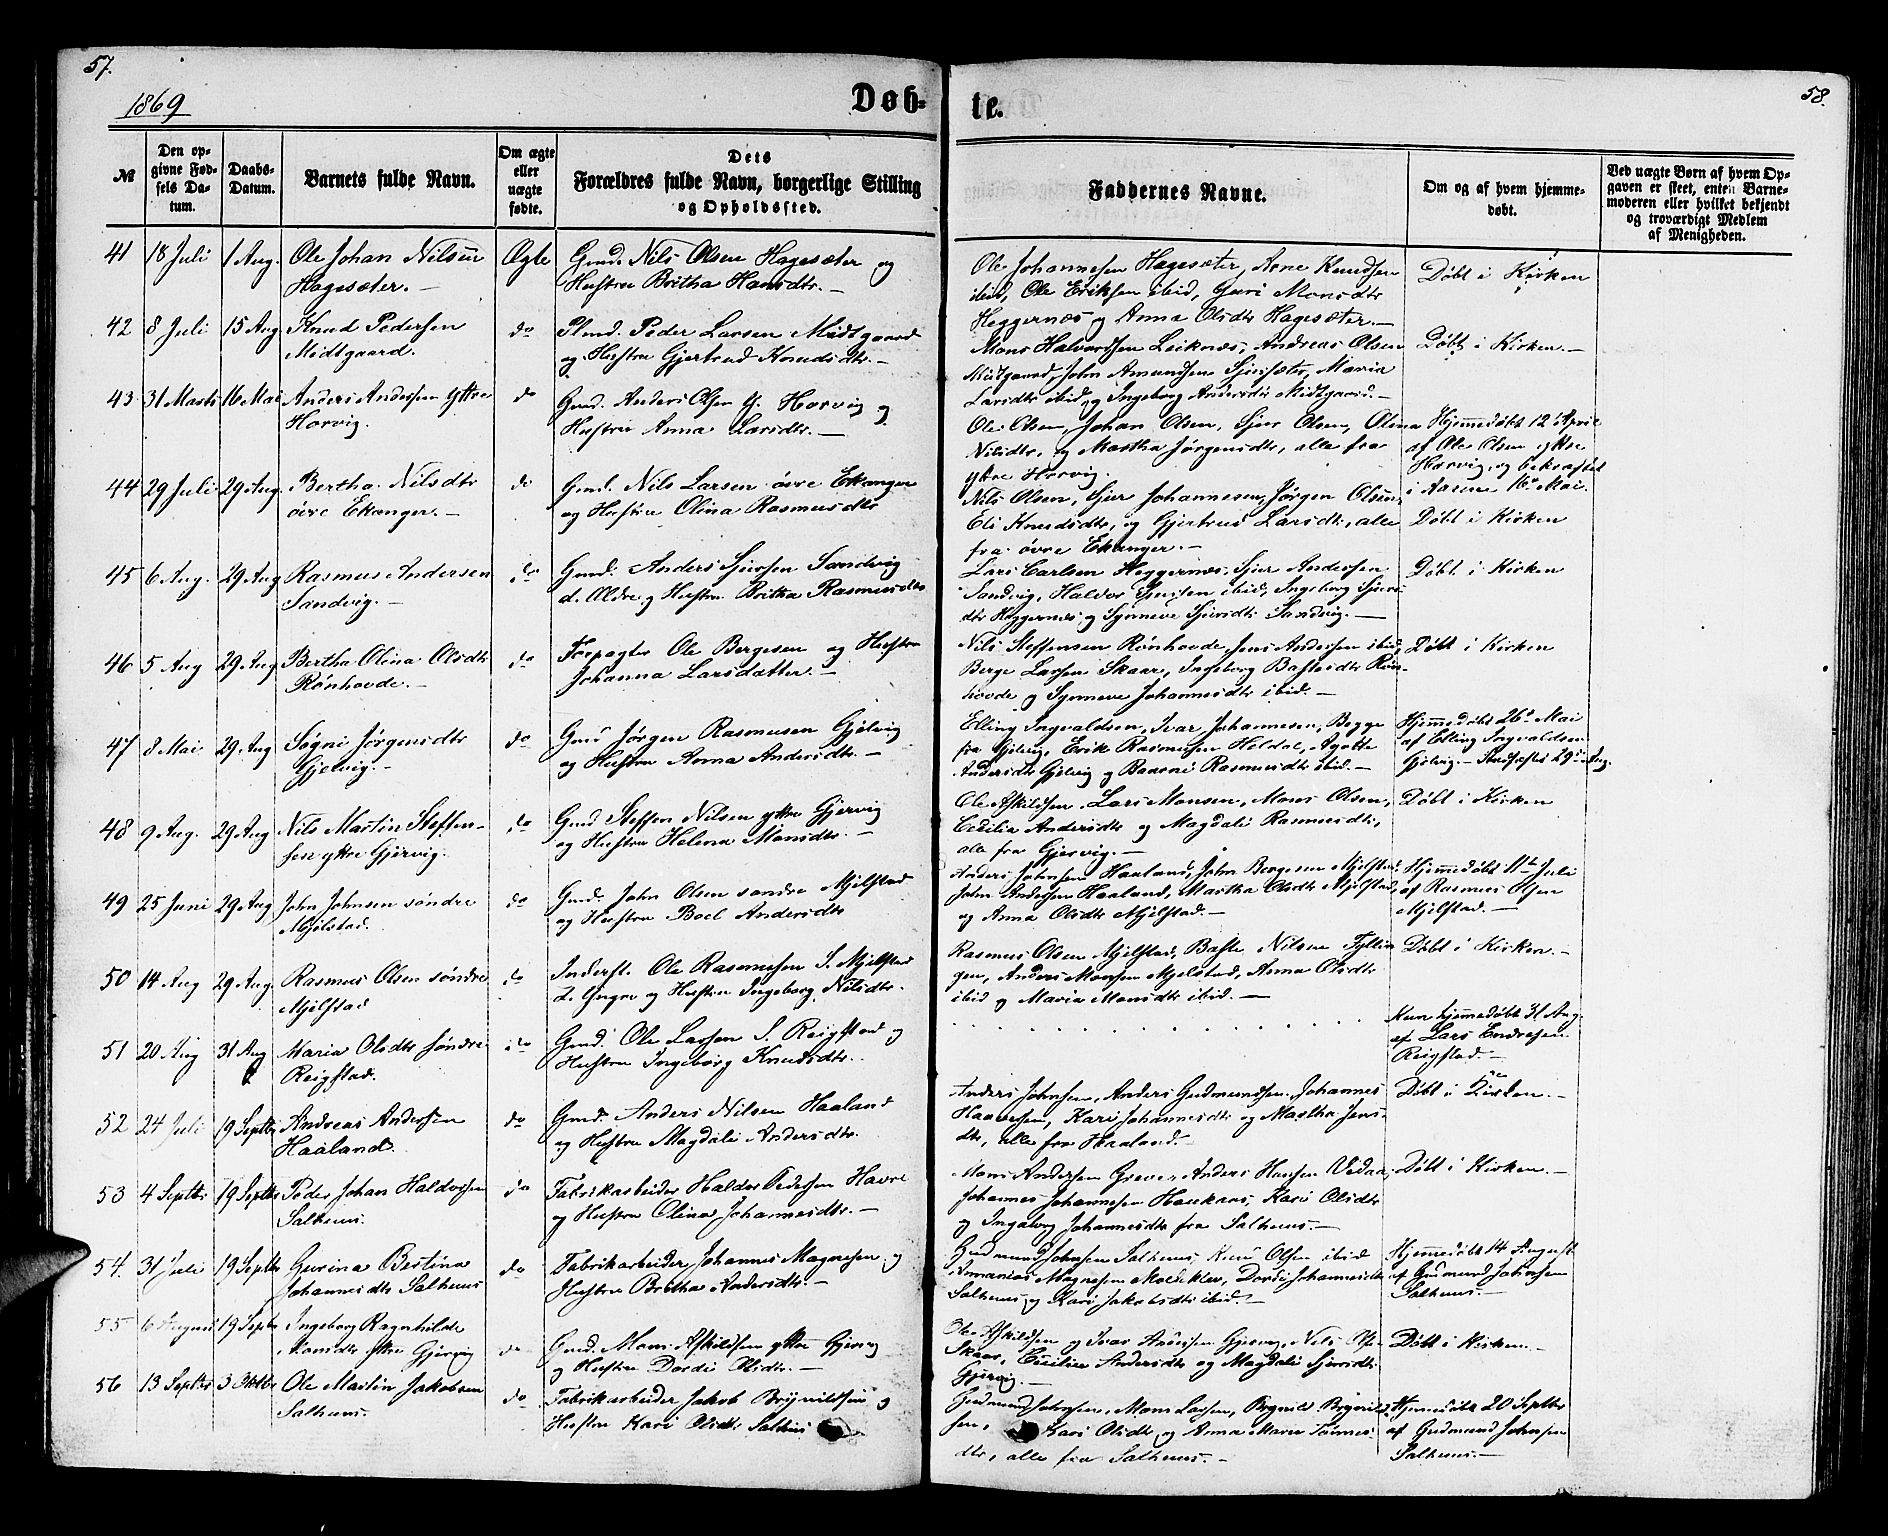 57.
58.
1869
Døb-
te.
№
Den op-
givne Fød-
sels Da-
tum.
Daabs-
Datum.
Barnets fulde Navn.
Om ægte
eller
uægte
fødte.
Dets
Forældres fulde Navn, borgerlige Stilling
og Opholdssted.
Faddernes Navne.
Om og af hvem hjemme-
døbt.
Ved uægte Børn af hvem Op-
gaven er skeet, enten Barne-
moderen eller hvilket bekjendt
og troværdigt Medlem
af Menigheden.
41 18 Juli 1 Aug. Ole Johan Nilsen Ægte Gmd. Nils Olsen Hagesæter og
Hagesæter. Hustru Britha Hansdtr.
Ole Johannesen Hagesæter, Arne Knudsen
ibid, Ole Eriksen ibid, Guri Monsdtr
Heggernæs og Anna Olsdtr Hagesæter.
Døbt i Kirken
42 8 Juli 15 Aug Knud Pedersen do Plmd. Peder Larsen Midtgaard
Midtgaard. og Hustru Gjertrud Knudsdtr.
Mons Halvardsen Leiknæs, Andreas Olsen
Midtgaard, John Amundsen, Maria
Larsdtr ibid, og Ingeborg Andersdtr Midtgaard.
Døbt i Kirken.
43 31 Marts 16 Mai Anders Andersen Yttre do Gmd. Anders Olsen y. Horvig og
Horvig. Hustru Anna Larsdtr.
Ole Olsen, Johan Olsen, Sjur Olsen, Olina
Nilsdtr, og Martha Jørgensdtr, alle fra
ytre Horvig.
Hjemmedøbt 12te April
af Ole Olsen ytre
Horvig, og bekræftet
i 16de Mai.
44 29 Juli 29 Aug Bertha Nilsdtr do Gmd. Nils Larsen øvre Ekanger
øvre Ekanger. og Hustru Olina Rasmusdtr
Nils Olsen, Sjur Johannesen, Jørgen Olsen,
Eli Knudsdtr, og Gjertrud Larsdtr, alle
fra øvre Ekanger.
Døbt i Kirken
45 6 Aug. 29 Aug Rasmus Andersen do Gmd. Anders Sjursen Sandvig
Sandvig. d. Ældre og Hustru Britha Rasmusdtr
Lars Carlsen Heggernæs, Sjur Andersen
Sandvig, Haldor Sjursen ibid, Ingeborg Sjurs-
dtr Heggernæs og Synneve Sjursdtr Sandvig.
Døbt i Kirken
46 5 Aug 29 Aug Bertha Olina Olsdtr do Ole Bergesen og Hustru
Rønhovde. Johanna Larsdatter.
Nils Steffensen Rønhovde, Jens Andersen ibid,
Berge Larsen Skaar, Ingeborg Bastesdtr Røn-
hovde og Synneve Johannesdtr ibid.
Døbt i Kirken
47 8 Mai 29 Aug Søgni Jørgensdtr do Gmd Jørgen Rasmusen Gjelvig
Gjelvig. og Hustru Anna Andersdtr.
Elling Ingvaldsen, Ivar Johannesen, Begge
fra Gjelvig, Erik Rasmusen Heldal, Agathe
Andersdtr Gjelvig og Rasmusdtr ibid.
Hjemmedøbt 26de Mai
af Elling Ingvaldsen
Gjelvig. Stadfæstet 29de Aug.
48 9 Aug. 29 Aug Nils Martin Steffen- do Gmd Steffen Nilsen yttre Gjervig
sen yttre Gjervig. og Hustru Helena Monsdtr.
Ole Askildsen, Lars Monsen, Mons Olsen,
Cecilia Andersdtr og Magdali Rasmusdtr,
alle fra Gjervig.
Døbt i Kirken
49 25 Juni 29 Aug John Johnsen søndre do Gmd. John Olsen søndre Mjelstad
Mjelstad. og Hustru Boel Andersdtr
Anders Johnsen Haaland, John Bergesen Mjelstad,
John Andersen Haaland, Martha Olsdtr Mjelstad,
og Anna Olsdtr Mjelstad.
Hjemmedøbt 11te Juli
af Rasmus Olsen
Mjelstad.
50 14 Aug 29 Aug Rasmus Olsen søndre do Inderst. Ole Rasmusen S. Mjelstad
Mjelstad d. Yngre og Hustru Ingeborg Nilsdtr.
Rasmus Olsen Mjelstad, Baste Nilsen Fyllin-
gen, Anders Monsen Mjelstad, Anna Olsdtr
ibid og Maria Monsdtr ibid.
Døbt i Kirken.
51 20 Aug 31 Aug Maria Olsdtr søndre do Gmd. Ole Larsen S. Reigstad og
Reigstad. Hustru Ingeborg Knudsdtr.
Kun hjemmedøbt 31 Aug.
af Lars Endresen
Reigstad.
52 24 Juli 19 Septbr Andreas Andersen do Gmd. Anders Nilsen Haaland
Haaland. og Hustru Magdali Andersdtr.
Anders Johnsen, Anders Gudmundsen, Johannes
Haavesen, Kari Johannesdtr og Martha Jens-
dtr, alle fra Haaland.
Døbt i Kirken.
53 4 Septbr 19 Septbr Peder Johan Haldorsen do Fabrikarbeider Haldor Pedersen Havre
Salhuus. og Hustru Olina Johannesdtr.
Mons Andersen Greve, Anders Hansen Vedaa,
Johannes Johannesen Haukaas, Kari Olsdtr
og Ingeborg Johannesdtr fra Salhuus.
Døbt i Kirken.
54. 31 Juli 19 Septbr Gurina Bertina do Fabrikarbeider Johannes Magnesen og
Johannesdtr Salhuus Hustru Britha Andersdtr.
Gudmund Johnsen Salhuus, Knud Olsen ibid
Ananias Magnesen Moldeklev, Dordi Johannesdtr
Salhuus, og Kari Jakobsdtr ibid.
Hjemmedøbt 14 August
af Gudmund Johnsen
Salhuus.
55 6 August 19 Septbr Ingeborg Ragnhilde do Gmd. Mons Askildsen yttre Gjervig
Monsdtr yttre Gjervig og Hustru Dordi Olsdtr.
Ole Askildsen og Ivar Gjervig, Nils Olsen
Skaar, Cecilia Andersdtr og Magdali Sjursdtr
Gjervig.
Døbt i Kirken.
56 13 Septbr 3 Oktbr Ole Martin Jakobsen do Fabrikarbeider Jakob Brynildsen og
Salhuus. Hustru Kari Olsdtr Salhuus
Gudmund Johnsen, Mons Larsen, Brynild Brynild-
sen, Kari Olsdtr og Anna Maria Tønnes-
dtr, alle fra Salhuus.
Hjemmedøbt 20 Septbr
af Gudmund Johnsen
Salhuus.